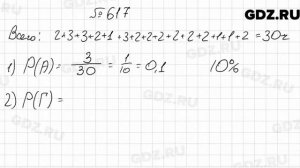 GDZ.RU
№617
Всего: 2+3+3+2+1+3+2+2+2+2+2+2+1+1+2=30г
1) P(A)= 3/30 = 1/10 = 0,1 10%
2) P(Г)=
GDZ.RU